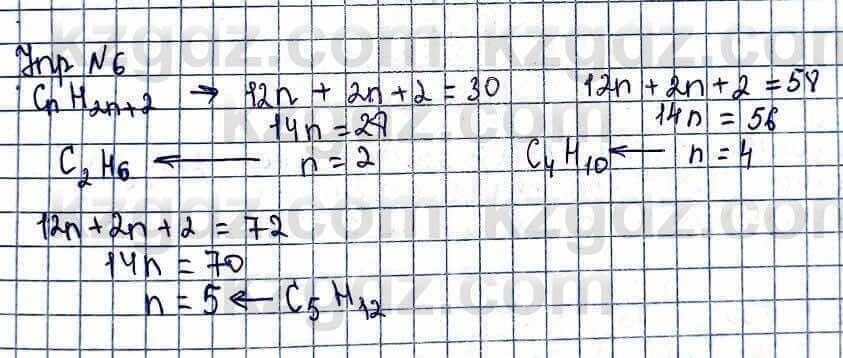 Упр N6
CnH2n+2 → 12n + 2n + 2 = 30
14n = 28
C2H6 ← n = 2
12n + 2n + 2 = 58
14n = 56
C4H10 ← n = 4
12n + 2n + 2 = 72
14n = 70
n = 5 ← C5H12
kzgdz.com kzgdz.com
kzgdz.com kzgdz.com
kzgdz.com kzgdz.com
kzgdz.com kzgdz.com